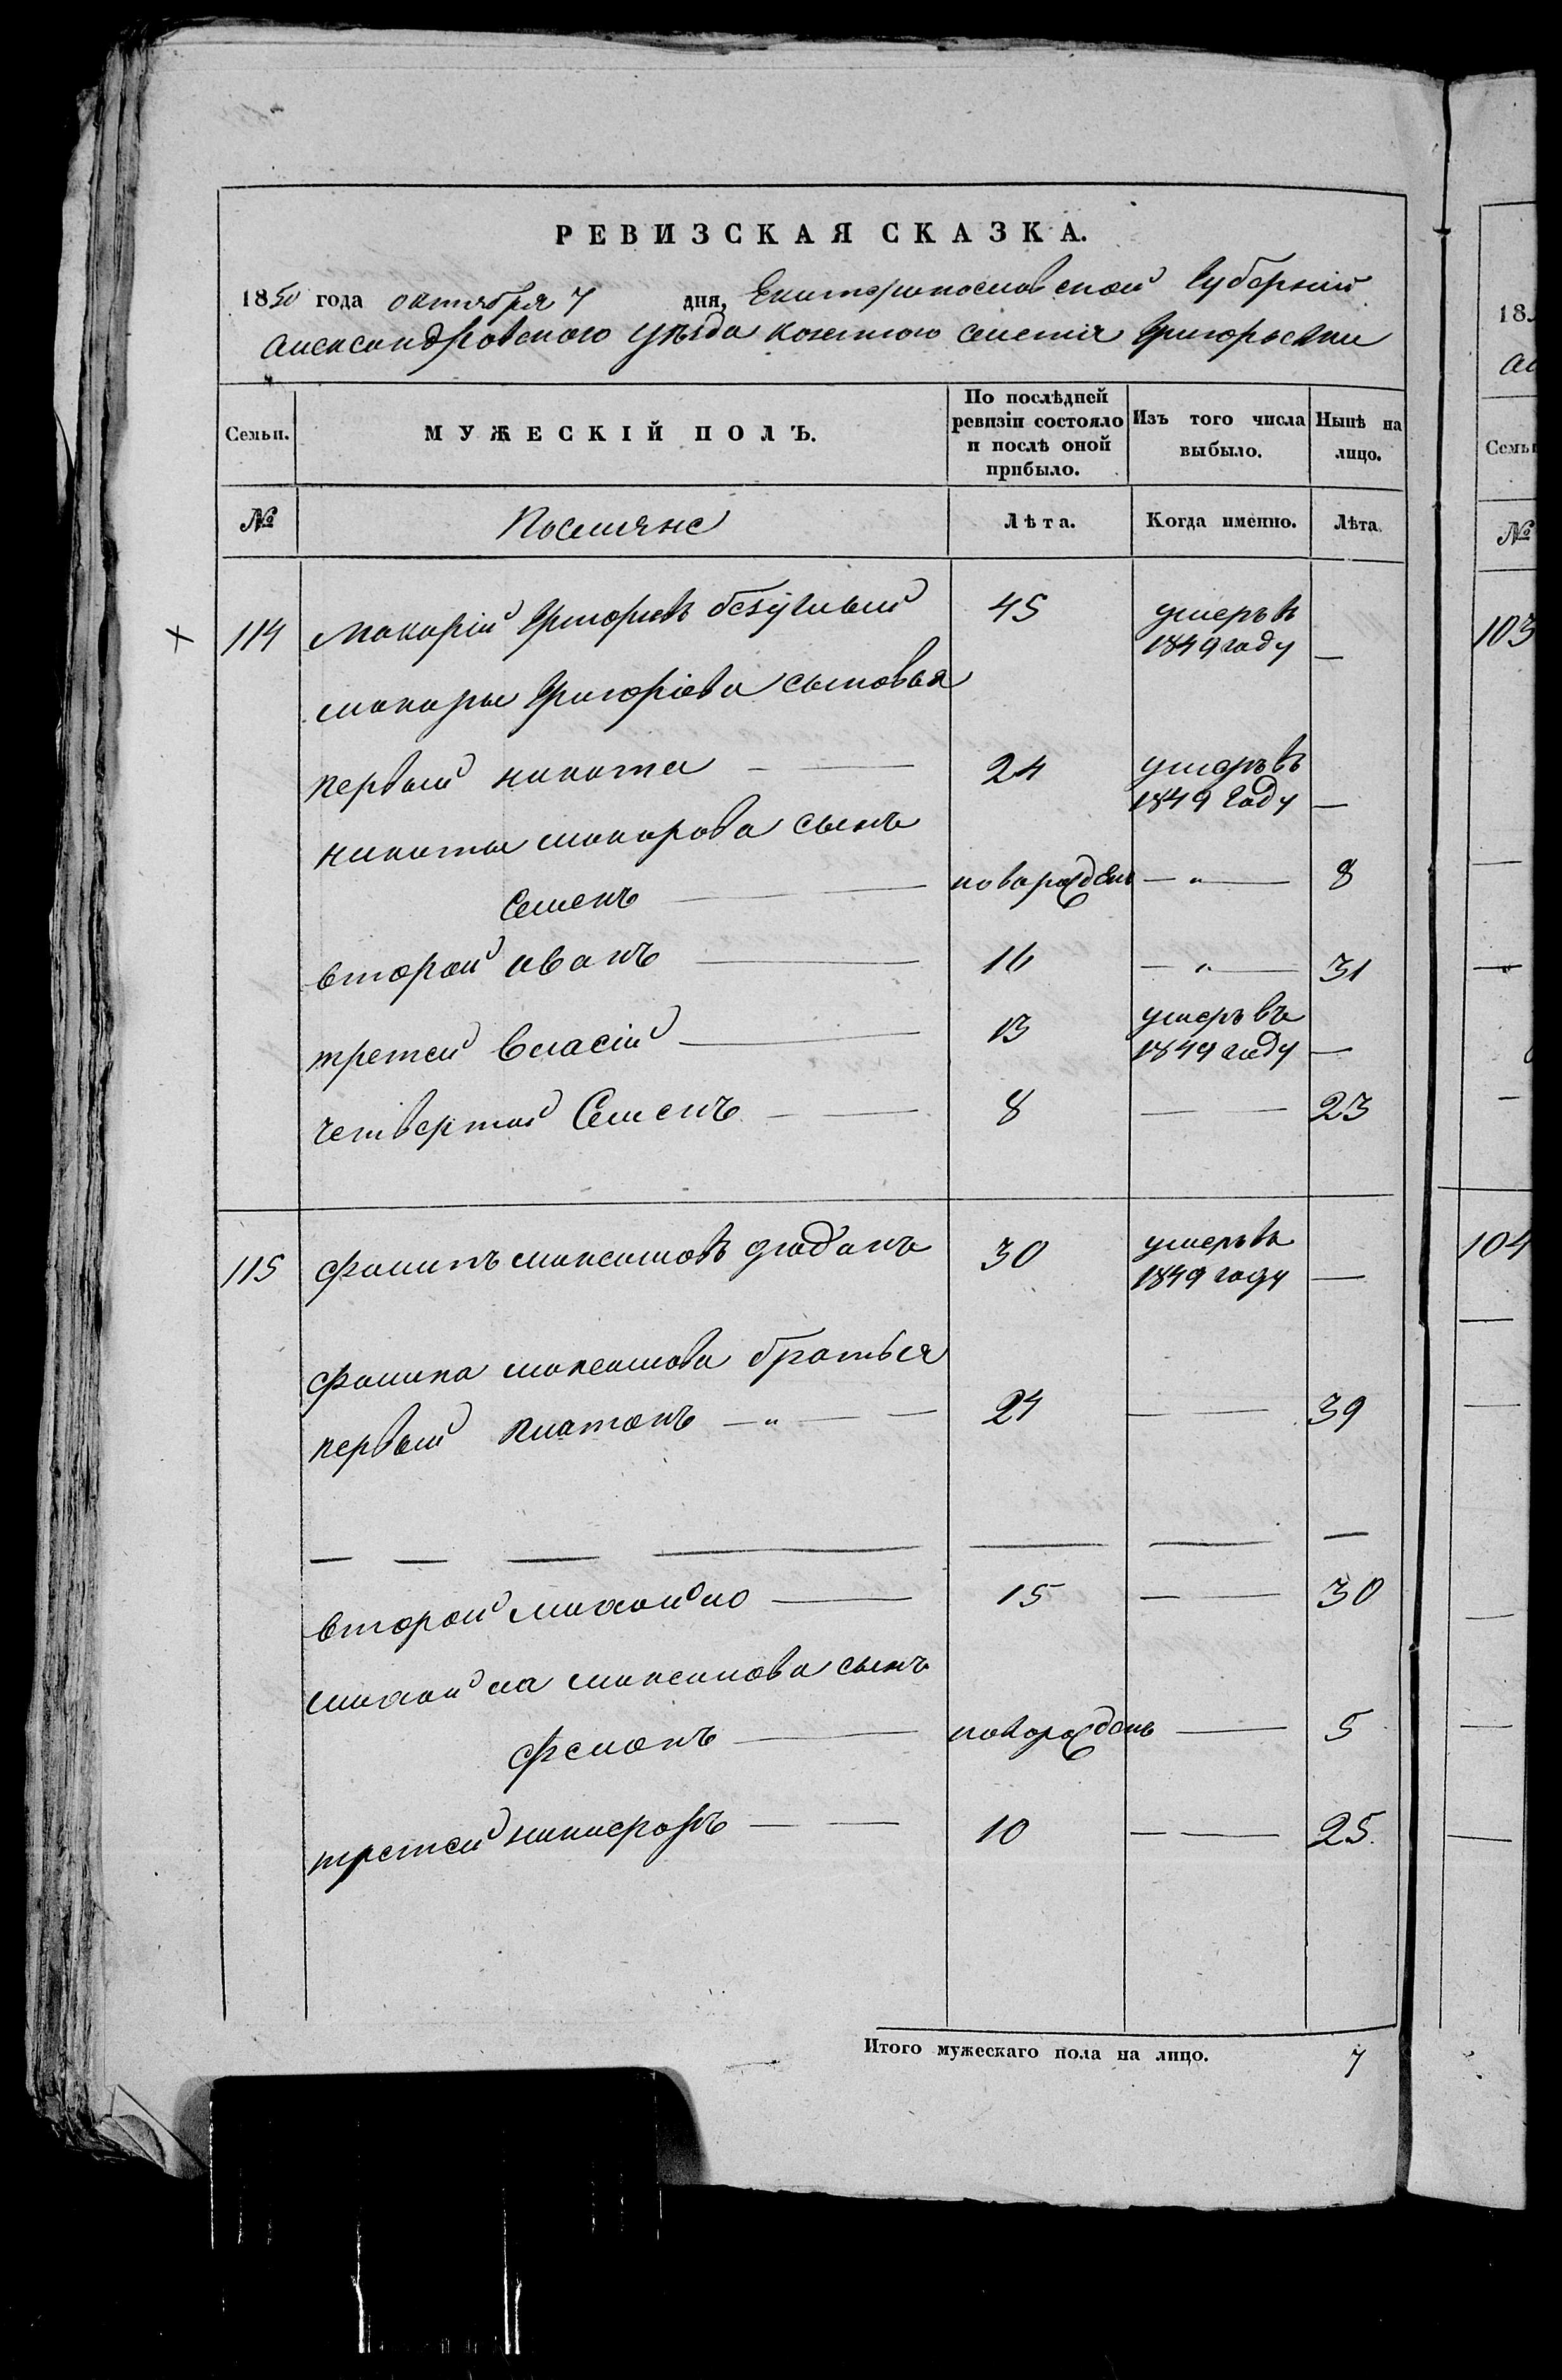 РЕВИЗСКАЯ СКАЗКА.
1850 года октября 7 дня, Екатеринославской Губернии
Александровского уезда казенного селения Григорьевки
Семьи. МУЖЕСКІЙ ПОЛЪ. По послѣдней ревизіи состояло и послѣ оной прибыло. Изъ того числа выбыло. Нынѣ на лицо.
№ Поселяне Лѣта. Когда именно. Лѣта.
114 Макарій Григорьевъ 45 умеръ въ 1849 году —
макарья Григоріева сыновья
первый никита — 24 умеръ въ 1849 Году —
никиты макарова сынъ
Семенъ — новорожденъ — " — 8
второй иванъ — 16 — " — 31
третей власій — 13 умеръ въ 1849 году —
четвертой Семенъ — 8 — 23
115 филипъ максимовъ 30 умеръ въ 1849 году —
филипа максимова братья
первый платонъ — " — 24 — 39
второй михайло — 15 — 30
михайла максимова сынъ
новорожденъ — 5
третей никифоръ — 10 — 25.
Итого мужескаго пола на лицо. 7
18
Семьи
№
103
104